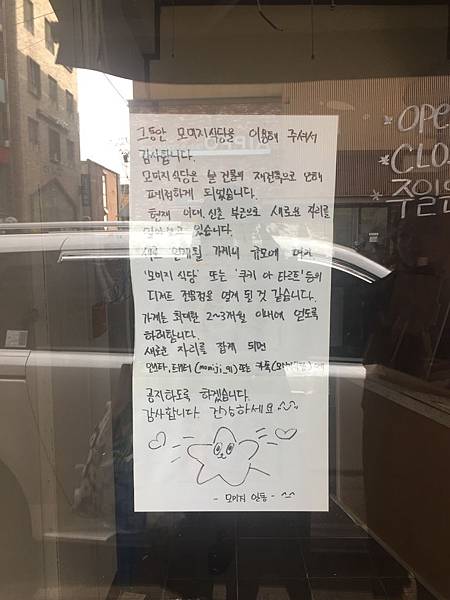 그동안 모미지식당을 이용해 주셔서
감사합니다.
모미지식당은 본 건물의 재건축으로 인해
폐점하게 되었습니다.
현재 이대, 신촌 부근으로 새로운 자리를
있습니다.
새로 열게될 가게는 규모에 따라
'모미지 식당' 또는 '쿠키 아 타르트' 등의
디저트 전문점을 열게 될 것 같습니다.
가게는 최대한 2~3개월 이내에 열도록
하려합니다.
새로운 자리를 잡게 되면
인스타, 트위터 (momiji_91) 또는 카톡
공지하도록 하겠습니다.
감사합니다. 건강하세요 ^^
- 모미지 일동 - ^-^
OPE
CLO
주일은